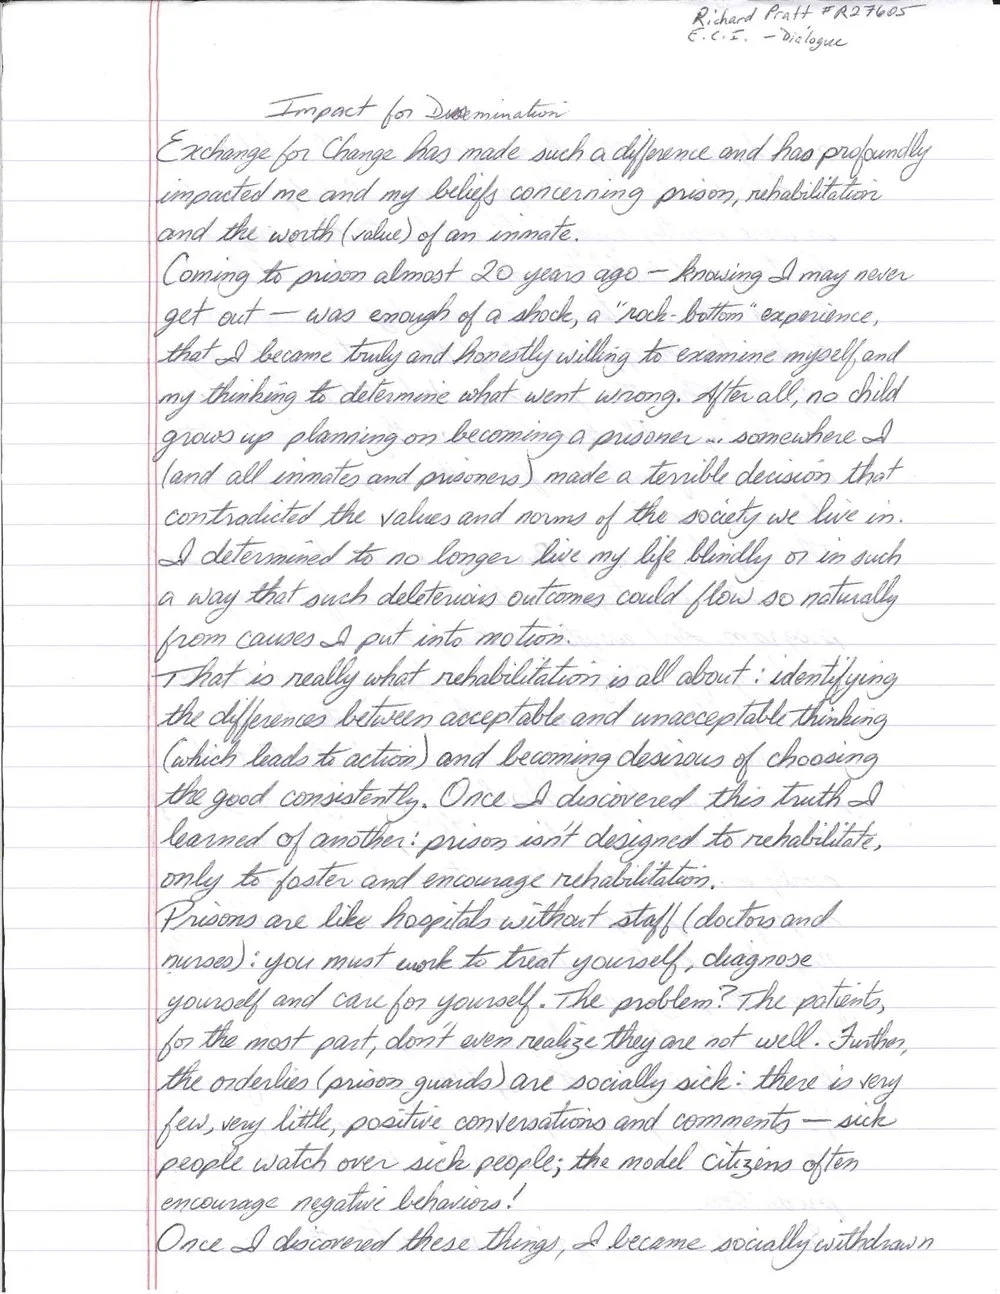 Richard Pratt #R27605
E.C.I. - Dialogue
Impact for Dissemination
Exchange for Change has made such a difference and has profoundly
impacted me and my beliefs concerning prison, rehabilitation
and the worth (value) of an inmate.
Coming to prison almost 20 years ago — knowing I may never
get out — was enough of a shock, a "rock-bottom" experience,
that I became truly and honestly willing to examine myself and
my thinking to determine what went wrong. After all, no child
grows up planning on becoming a prisoner... somewhere I
(and all inmates and prisoners) made a terrible decision that
contradicted the values and norms of the society we live in.
I determined to no longer live my life blindly or in such
a way that such deleterious outcomes could flow so naturally
from causes I put into motion.
That is really what rehabilitation is all about: identifying
the differences between acceptable and unacceptable thinking
(which leads to action) and becoming desirous of choosing
the good consistently. Once I discovered this truth I
learned of another: prison isn't designed to rehabilitate,
only to foster and encourage rehabilitation.
Prisons are like hospitals without staff (doctors and
nurses): you must work to treat yourself, diagnose
yourself and care for yourself. The problem? The patients,
for the most part, don't even realize they are not well. Further,
the orderlies (prison guards) are socially sick: there is very
few, very little, positive conversations and comments — sick
people watch over sick people; the model citizens often
encourage negative behaviors!
Once I discovered these things, I became socially withdrawn